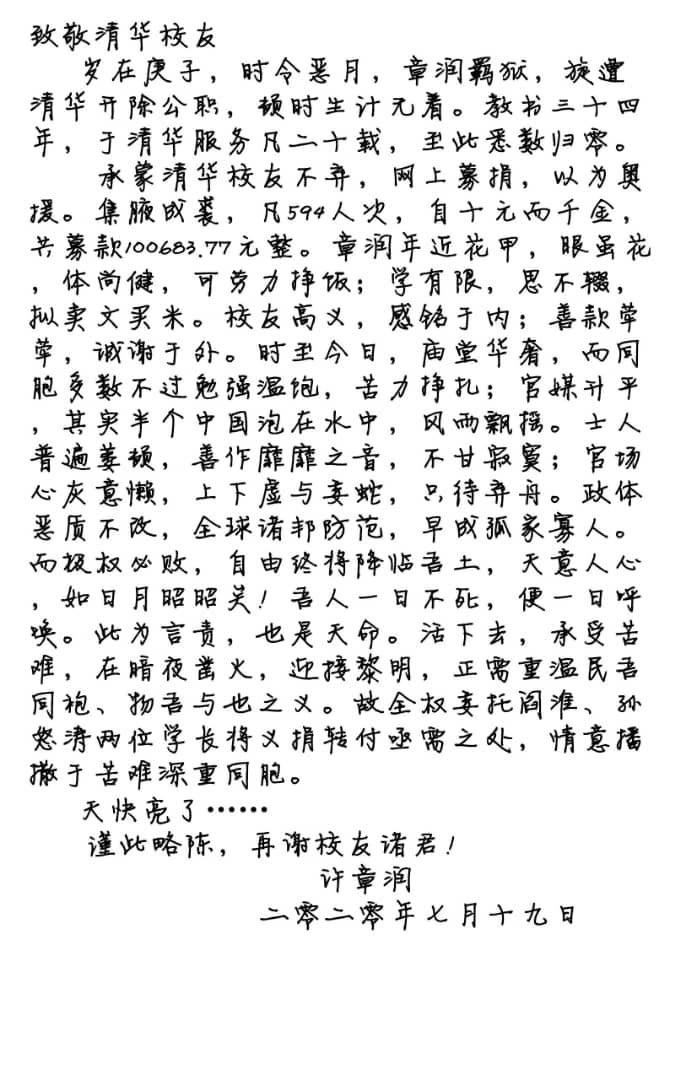 致敬清华校友
岁在庚子，时令恶月，章润羁狱，旋遭
清华开除公职，顿时生计无着。教书三十四
年，于清华服务凡二十载，至此悉数归零。
承蒙清华校友不弃，网上募捐，以为奥
援。集腋成裘，凡594人次，自十元而千金，
共募款100683.77元整。章润年近花甲，眼虽花
，体尚健，可劳力挣饭；学有限，思不辍，
拟卖文买米。校友高义，感铭于内；善款荦
荦，诚谢于外。时至今日，庙堂华奢，而同
胞多数不过勉强温饱，苦力挣扎；官媒升平
，其实半个中国泡在水中，风雨飘摇。士人
普遍萎顿，善作靡靡之音，不甘寂寞；官场
心灰意懒，上下虚与委蛇，只待弃舟。政体
恶质不改，全球诸邦防范，早成孤家寡人。
而极权必败，自由终将降临吾土，天意人心
，如日月昭昭矣！吾人一日不死，便一日呼
唤。此为言责，也是天命。活下去，承受苦
难，在暗夜凿火，迎接黎明，正需重温民吾
同袍、物吾与也之义。故全权委托阎淮、孙
怒涛两位学长将义捐转付亟需之处，情意播
撒于苦难深重同胞。
天快亮了……
谨此略陈，再谢校友诸君！
许章润
二零二零年七月十九日